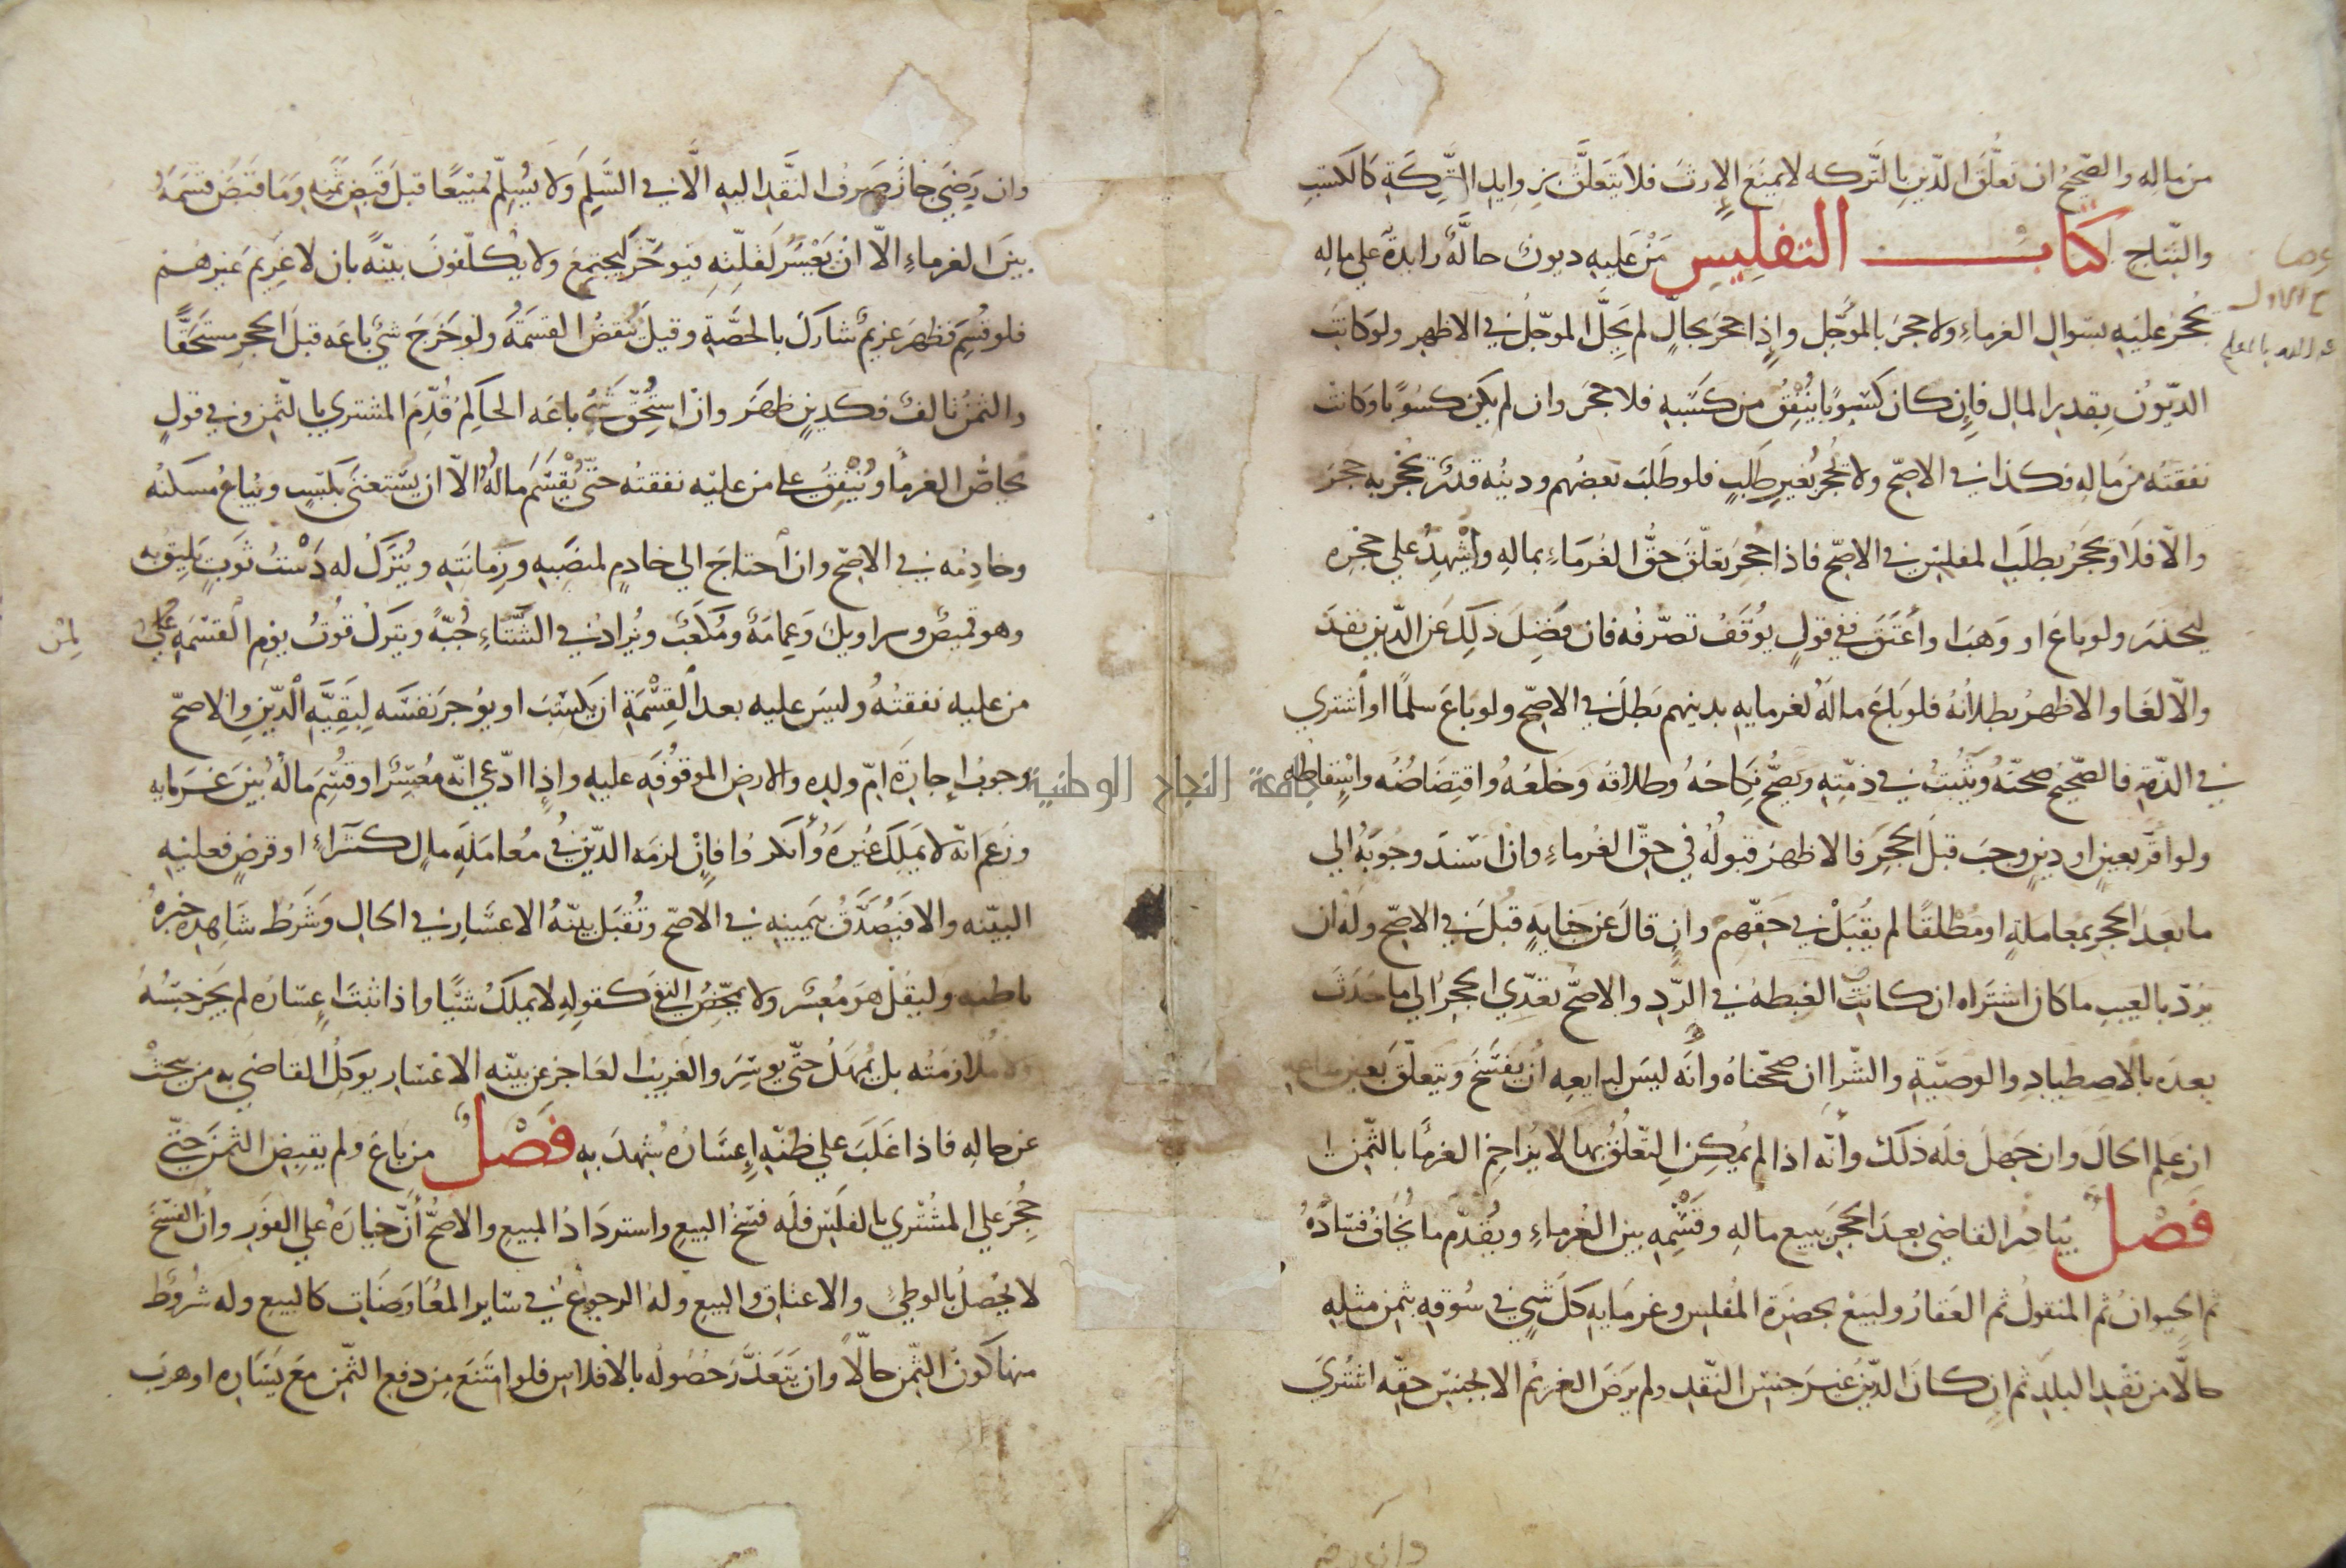 من ماله والصّحيحُ ان تعلُّقَ الدّينِ بالتَّركه لا يمنَعُ الإرثَ فلا يتعَلَّقُ بزوايدِ التَّرِكَةِ كالكسْبِ
والنّتاج كتابُ التفليسِ مَنْ عَليه ديونٌ حالَّةٌ زايدةٌ علي مالِه
يُحجَرُ عليه بسوالِ الغرماءِ ولا حجرَ بالموجَّل وإذا حجرَ بحالٍّ لم يَحِلَّ الموجّلُ في الاظهرِ ولو كانتِ
الدّيونُ بقدرِ المالِ فإن كان كَسُوبًا يُنْفِقُ من كَسْبِهِ فلا حجرَ وان لم يكن كسُوبًا وكانت
نفقتُه من مالِه فكذا في الاصحّ ولا يُحجَرُ بغيرِ طَلَبٍ فلو طَلَبَ بعضُهم ودينُه قدرٌ يُحْجرُ به حجرَ
والّا فلا ويحجَرُ بطلَبِ المفلسِ في الاصحّ فاذا حُجِرَ تعلّقَ حقُّ الغُرمَاءِ بمالِهِ وأَشْهدَ علي حجرِه
ليُحذرَ ولو باعَ او وَهبَ او أعتَقَ ففي قولٍ يُوقَفُ تصرّفُه فان فَضِلَ ذلِكَ عَن الدّينِ نفذَ
والّا لغَا والاظهرُ بطلانُهُ فلو بَاعَ مالَهُ لغرمايهِ بدينِهم بَطَلَ في الاصحّ ولو باعَ سلمًا او اشتري
في الذّمّةِ فالصّحيحُ صحتّهُ ويَثبُتُ في ذمّتِهِ ويصحُّ نِكاحُهُ وطلاقُه وَخلعُهُ واقتِصَاصُه وإسْقاطُه
ولو اقرَّ بعينٍ او دينٍ وجبَ قبلَ الحَجْرِ فالاظهرُ قبولُهُ في حقّ الغُرماءِ وان اسندَ وجُوبَهُ الي
ما بعدَ الحجرِ بمُعاملةٍ او مُطْلقًا لم يُقْبَلْ في حَقّهم وان قالَ عن جنايةٍ قُبلَ في الاصحّ ولَه ان
يَرُدّ بالعيبِ ما كان اشتَراه ان كانتِ الغِبطهُ في الرّدِ والاصحُّ تعدّي الحجرِ الي ما حَدَثَ
بعدَه بالاصطيادِ والوصيَّةِ والشّرا ان صحّحناهُ وأنَّه ليسَ لبايعِه أن يَفْسَخَ ويَتعلّقَ بعينِ متاعِه
ان عَلِم الحالَ وان جَهِلَ فلَه ذلكَ وأنَّه اذا لم يُمكنِ التّعلُّقُ بها لا يُزاحِمُ الغرمَا بالثّمنِ
فَصْلٌ يُبادِرُ القاضي بعدَ الحجرِ ببيعِ مالِهِ وقَسْمِهِ بين الغُرماءِ ويُقدّم ما يُخافُ فسَادُهُ
ثم الحيوانُ ثم المنقولُ ثم العَقارُ وليبَعْ بحضرَةِ المُفلسِ وغرمَايهِ كلّ شيٍ في سُوقهِ بثمنِ مثلِهِ
حالًا من نقْدِ البلدِ ثم ان كانَ الدّينُ غيرَ جنسِ النّقدِ ولم يرضَ الغريمُ الا بجنسِ حقّه اشتُريَ
وان رضِيَ جازَ صَرفُ النّقدِ اليه الّا في السّلمِ ولا يُسلِّم مَبيعًا قبلَ قبضِ ثمَنِهِ ومَا قبضَ قسَمَهُ
بينَ الغرماءِ الّا ان يَعْسُرَ لقلّتِهِ فيوخّرُ ليجتمِعَ ولا يُكلّفونَ بيّنةً بان لا غريمَ غيرهُم
فلو قُسِمَ فظهرَ غريمٌ شاركَ بالحصَّةِ وقيلَ تُنقضُ القسمَةُ ولو خَرَجَ شيٌ باعَه قبلَ الحجرِ مستَحَقًّا
والثمنُ تالفٌ فكدينٍ ظهرَ وان استُحِقّ شيٌ باعَه الحاكِمُ قُدّمَ المشتري بالثّمنِ وفي قولٍ
يُحاصُّ الغرما ويُنْفِقُ علي من عليه نفقتُه حتّي يُقْسَمَ مالُهُ الّا ان يسْتَغنيَ بكَسْبٍ ويُباعُ مسكنُه
وخادِمُه في الاصحّ وان احتاجَ الي خادمٍ لمنصَبِهِ وزمانَتِهِ ويُترَكُ له دَسْتُ ثَوبٍ يَليقُ به
وهو قميصٌ وسراويلُ وَعِمامَةٌ ومُكعَبٌ ويُزادُ في الشّتاءِ جُبّةً ويترَكُ قُوتُ يومِ القسْمَةِ
لمن
من عليه نفقتُهُ وليسَ عليه بعدَ القِسْمَةِ ان يكتَسِبَ او يوجرَ نفسَه لِبَقِيَّةِ الدّينِ والاصحّ
وجوبُ إجارَةِ امّ ولدِه والارضِ الموقُوفَةِ عليه وإذا ادّعي انّه مُعسِرٌ او قُسِمَ مالُهُ بينَ غرمَايه
وزَعَم انّه لا يَملِكُ غيرَهُ وأنكروا فإن لزمَه الدّينُ في مُعامَلَةِ مالٍ كشَرَاءٍ او قرضٍ فعليه
البيّنه والا فيُصَدَّقُ بيمينِه في الاصحّ وتُقبَل بيّنةُ الاعسَارِ في الحالِ وَشَرْطُ شَاهدِه خبرةُ
باطنِه وليَقلْ هو مُعسر ولا يُمحّضُ النفي كقولِهِ لا يملكُ شيًّا واذا ثبتَ اعسَارُه لم يَجُزْ حبسُهُ
ولا مُلازمَتُه بل يُمهَلُ حتّي يوسِرَ والغريبُ العَاجزُ عن بيّنه الاعسَارِ يوكلُ القاضي به من يبحثُ
عن حالِه فاذا غلَبَ علي ظنّهِ إعسَارُهُ شُهدَ به فَصْلٌ من بَاعَ ولم يقبضِ الثمنَ حتّي
حُجِرَ علي المُشتري بالفلَسِ فلَه فسخُ البيعِ واستردَادُ المبيعِ والاصحُّ أنَّ خيارَهُ علي الفَورِ وأنَّ الفسخَ
لا يَحصُلُ بالوطئِ والاعتاقِ والبيعِ ولهُ الرجوعُ في سَايرِ المُعَاوضَاتِ كالبيعِ ولَه شُروطٌ
منها كونُ الثّمنِ حالًا وان يَتَعَذّرَ حُصُولُه بالافلاسِ فلو امتَنعَ مِن دفعِ الثّمنِ معَ يَسَارِه او هربَ
جامعة النجاح الوطنية